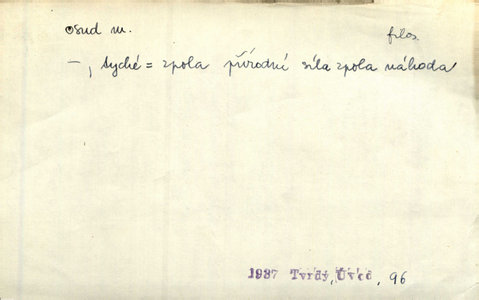 osud m. filos.
–, tyché = zpola přírodní síla zpola náhoda
1937 Tvrdý, Úvod, 96